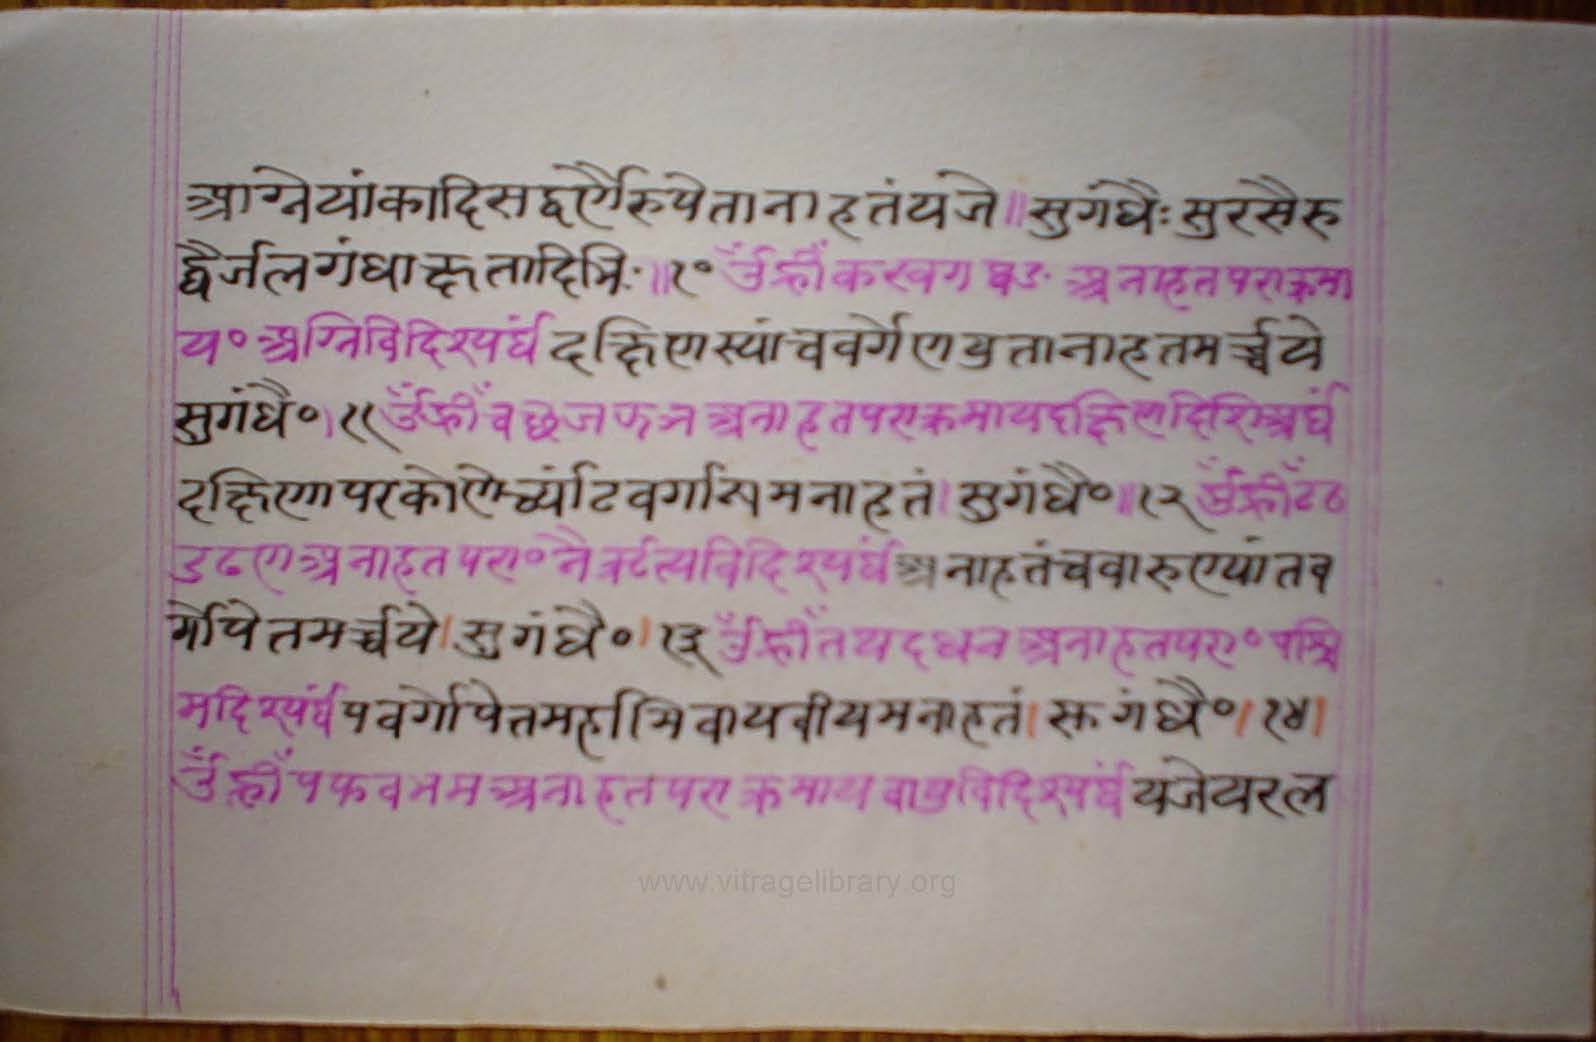 आग्नेयांकादिसद्वर्णैरुपेतानाहतंयजे॥सुगंधैःसुरसैरु
द्धैर्जलगंधाक्षतादिभिः॥१०ॐह्रीँकखगघङअनाहतपराक्रमा
य०अग्निविदिश्यर्घंदक्षिणस्यांचवर्गेणयुतानाहतमर्च्चये
सुगंधै०।११ॐह्रीँचछजझञअनाहतपराक्रमायदक्षिणदिशिअर्घं
दक्षिणापरकोणेटवर्गासमनाहतं।सुगंधै०॥१२ॐह्रीँटठ
डढणअनाहतपरा०नैऋत्यविदिश्यर्घंअनाहतंचवारुण्यांतव
र्गोपेतमर्च्चये।सुगंधै०।१३ॐह्रीँतथदधनअनाहतपरा०पश्चि
मदिश्यर्घंपवर्गोपेतमर्हामिवायवीयमनाहतं।सुगंधै०।१४।
ॐह्रीँपफबभमअनाहतपराक्रमायवायुविदिश्यर्घंयजेयरल
www.vitragelibrary.org